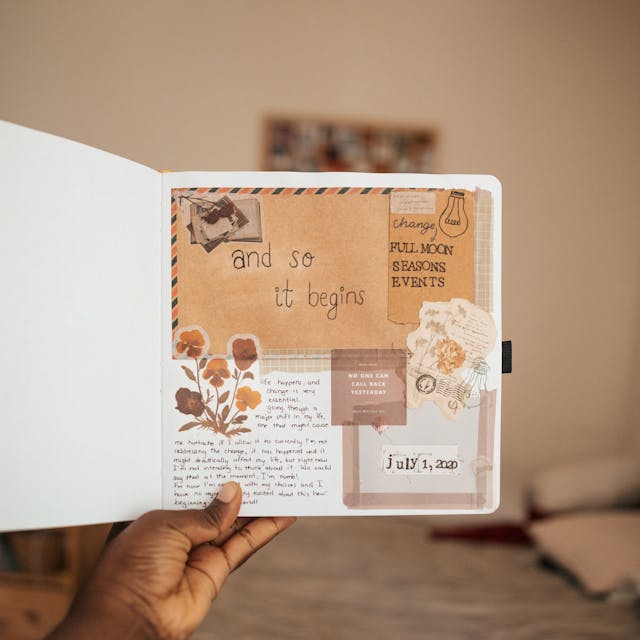 and so
it begins
change,
FULL MOON
SEASONS
EVENTS
NO ONE CAN
CALL BACK
YESTERDAY
life happens, and
change is very
essential.
going through a
major shift in my life,
one that might cause
me heartache if I allow it to. Currently I'm not
addressing the change, it has happened and it
might drastically affect my life, but right now
I'm not intending to think about it. We could
say that at the moment, I'm numb!
For now I'm with my choices and I
have no very excited about this new
beginning
july 1, 2020